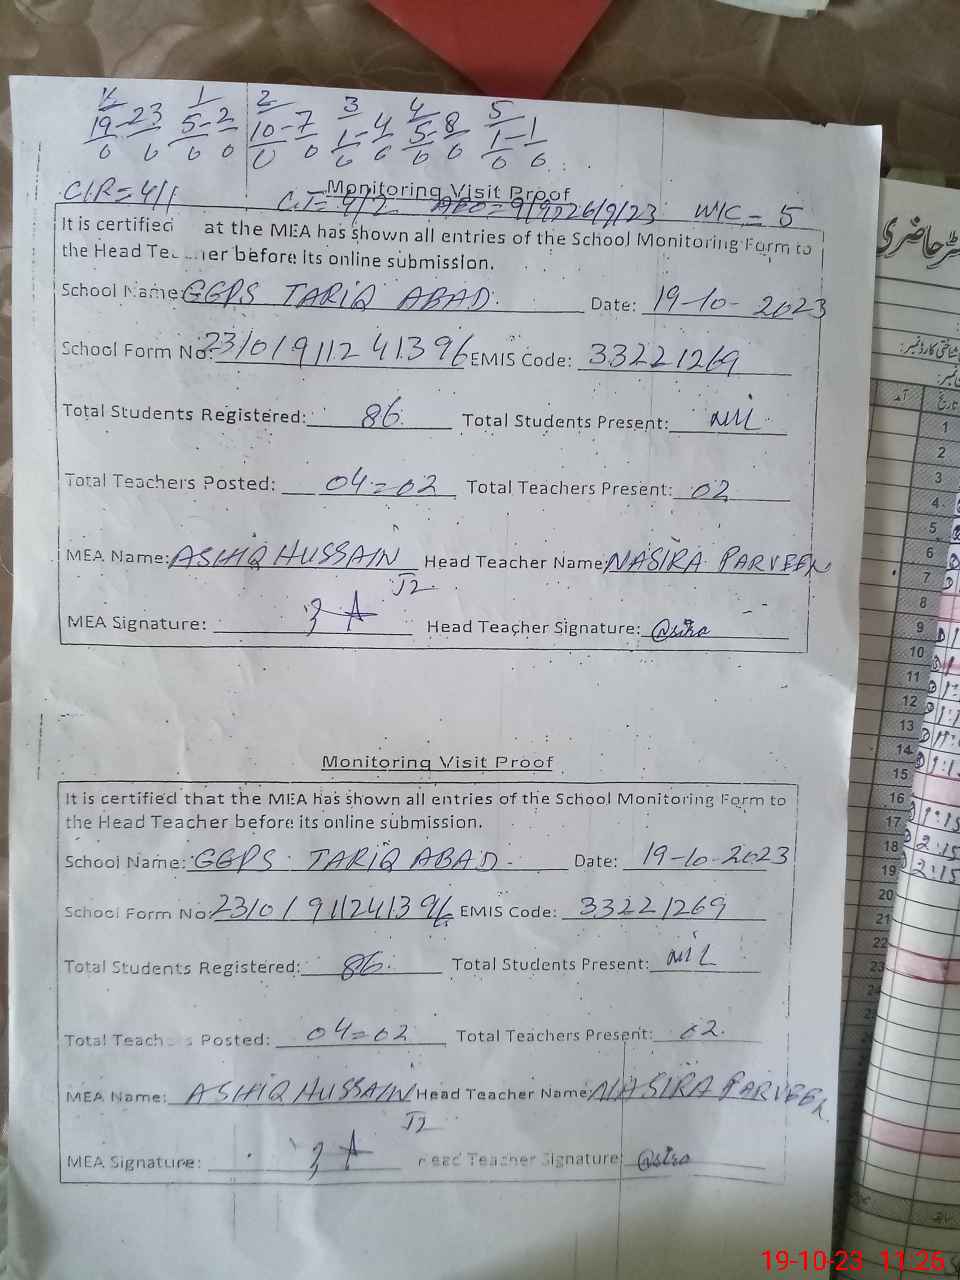 K 1 2 3 4 5
19-23 5-2 10-7 1-4 5-8 1-1
0 0 0 0 0 0 0 0 0 0 0
Monitoring Visit Proof
CIR=4/1 W/C = 5
It is certified at the MEA has shown all entries of the School Monitoring Form to
the Head Te her before its online submission.
School Name: GGPS TARIQ ABAD. Date: 19-10-2023
School Form No: 23101911241396 EMIS Code: 33221269
Total Students Registered: 86. Total Students Present: NIL
Total Teachers Posted: 04=02 Total Teachers Present: 02
MEA Name: ASHIQ HUSSAIN Head Teacher Name: NASIRA PARVEEN
J2
MEA Signature: Head Teacher Signature:
Monitoring Visit Proof
It is certified that the MEA has shown all entries of the School Monitoring Form to
the Head Teacher before its online submission.
School Name: GGPS TARIQ ABAD- Date: 19-10-2023
School Form No: 23101911241396 EMIS Code: 33221269
Total Students Registered: 86. Total Students Present: NIL
Total Teach s Posted: 04=02 Total Teachers Present: 02.
MEA Name: ASHIQ HUSSAIN Head Teacher Name NASIRA PARVEEN
J2
MEA Signature: Head Teacher Signature:
حاضری
تاریخ
1
2
3
4
5
6
7
8
9
10
11
12
13
14
15
16
17
18 2:15
19 2:15
20
21
22
23
19-10-23 11:26